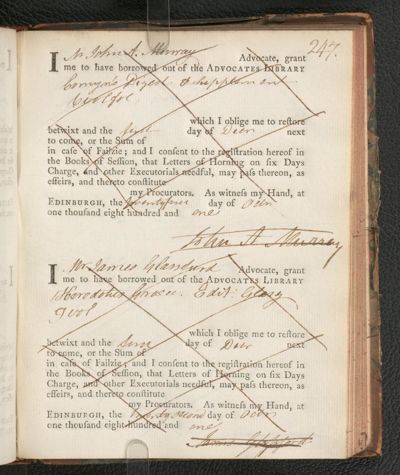 247.
I Mr John A. Murray Advocate, grant
me to have borrowed out of the ADVOCATES LIBRARY
Comyn's Digest &
which I oblige me to restore
betwixt and the day of Decr next
to come, or the Sum of
in case of Failzie; and I consent to the registration hereof in
the Books of Session, that Letters of Horning on six Days
Charge, and other Executorials needful, may pass thereon, as
effeirs, and thereto constitute
my Procurators. As witness my Hand, at
EDINBURGH, the day of Octr
one thousand eight hundred and one
John A Murray
I Mr James Advocate, grant
me to have borrowed out of the ADVOCATES LIBRARY
Herodotus Edit:
which I oblige me to restore
betwixt and the day of Decr next
to come, or the Sum of
in case of Failzie; and I consent to the registration hereof in
the Books of Session, that Letters of Horning on six Days
Charge, and other Executorials needful, may pass thereon, as
effeirs, and thereto constitute
my Procurators. As witness my Hand, at
EDINBURGH, the day of Octr
one thousand eight hundred and one
James